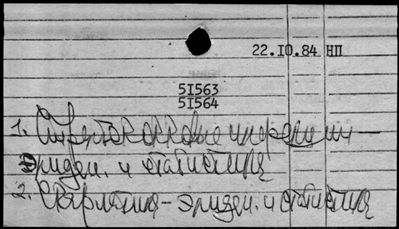 22.I0.84 НП
5I563
5I564
1. Стрептококковые инфекции
эпидем. и статистика
2. Скарлатина - эпидем. и статистика